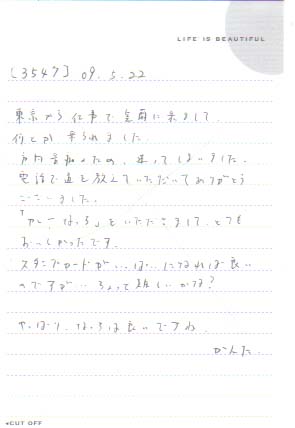 LIFE IS BEAUTIFUL
[3547] 09.5.22
東京から仕事で金面に来まして
何とか来られました。
市内言かったの、迷ってしまいました。
電話で道を教えていただいてありがとう
ございました。
「カレーなんち」をいただきまして、とても
おいしかったです。
スタンプカードが…い…になれば良い
のですが…ちょっと難しいかな?
やっぱり、なんちは良いですね。
かんた
◂CUT OFF